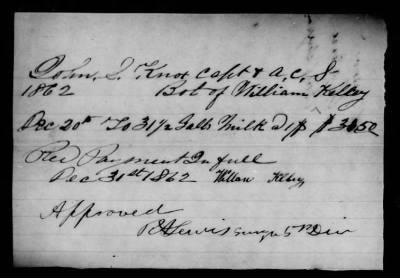 John. S. Knox Capt & A. C. S
1862 Bot of William Kelley
Dec 20th To 31½ Galls Milk @ 1$ $ 31.50
Recd Payment In full
Dec 31st 1862 William Kelley
Approved
Lewis Surgn 5th Div